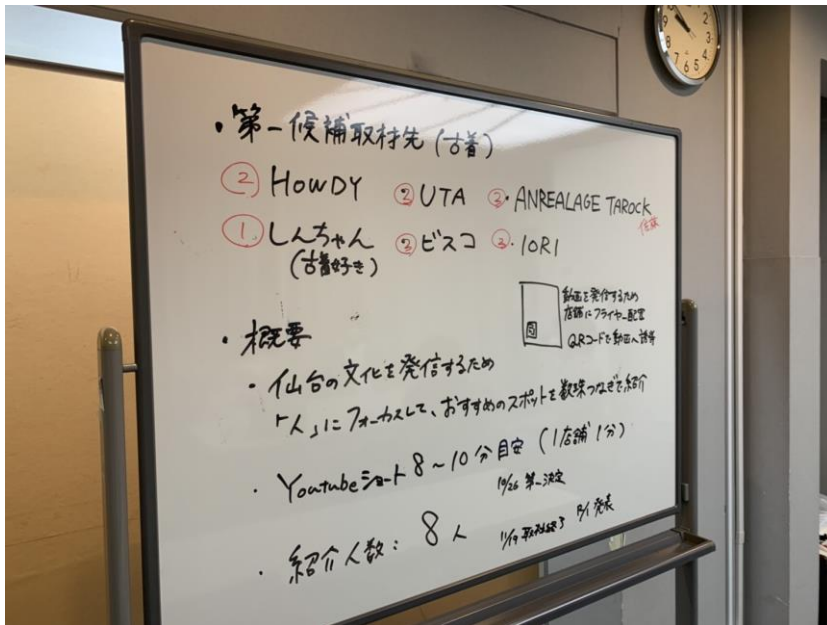 ・第一候補取材先(古着)
② HOWDY ② UTA ③・ANREALAGE TAROCK
① しんちゃん ② ビスコ ③・IORI
(古着好き)
動画を発信するため
店舗にフライヤー配置
QRコードで動画へ誘導
・概要
・仙台の文化を発信するため
「人」にフォーカスして、おすすめのスポットを数珠つなぎで紹介
・Youtubeショート 8～10分目安(1店舗1分)
10/26 第一決定
・紹介人数: 8人
11/19 取材終了 12/1 発表